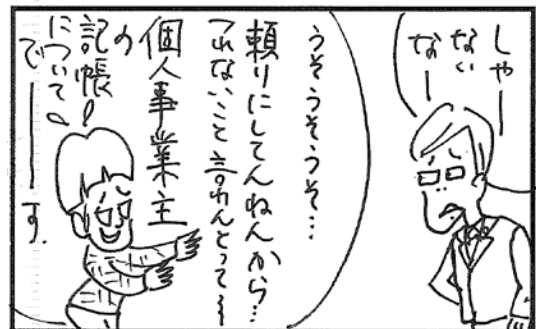 しゃー
ない
なー
うそうそうそ…
頼りにしてんねんから…
つれないこと言わんとって〜
個人事業主
の
記帳!
について♪
でーーす。